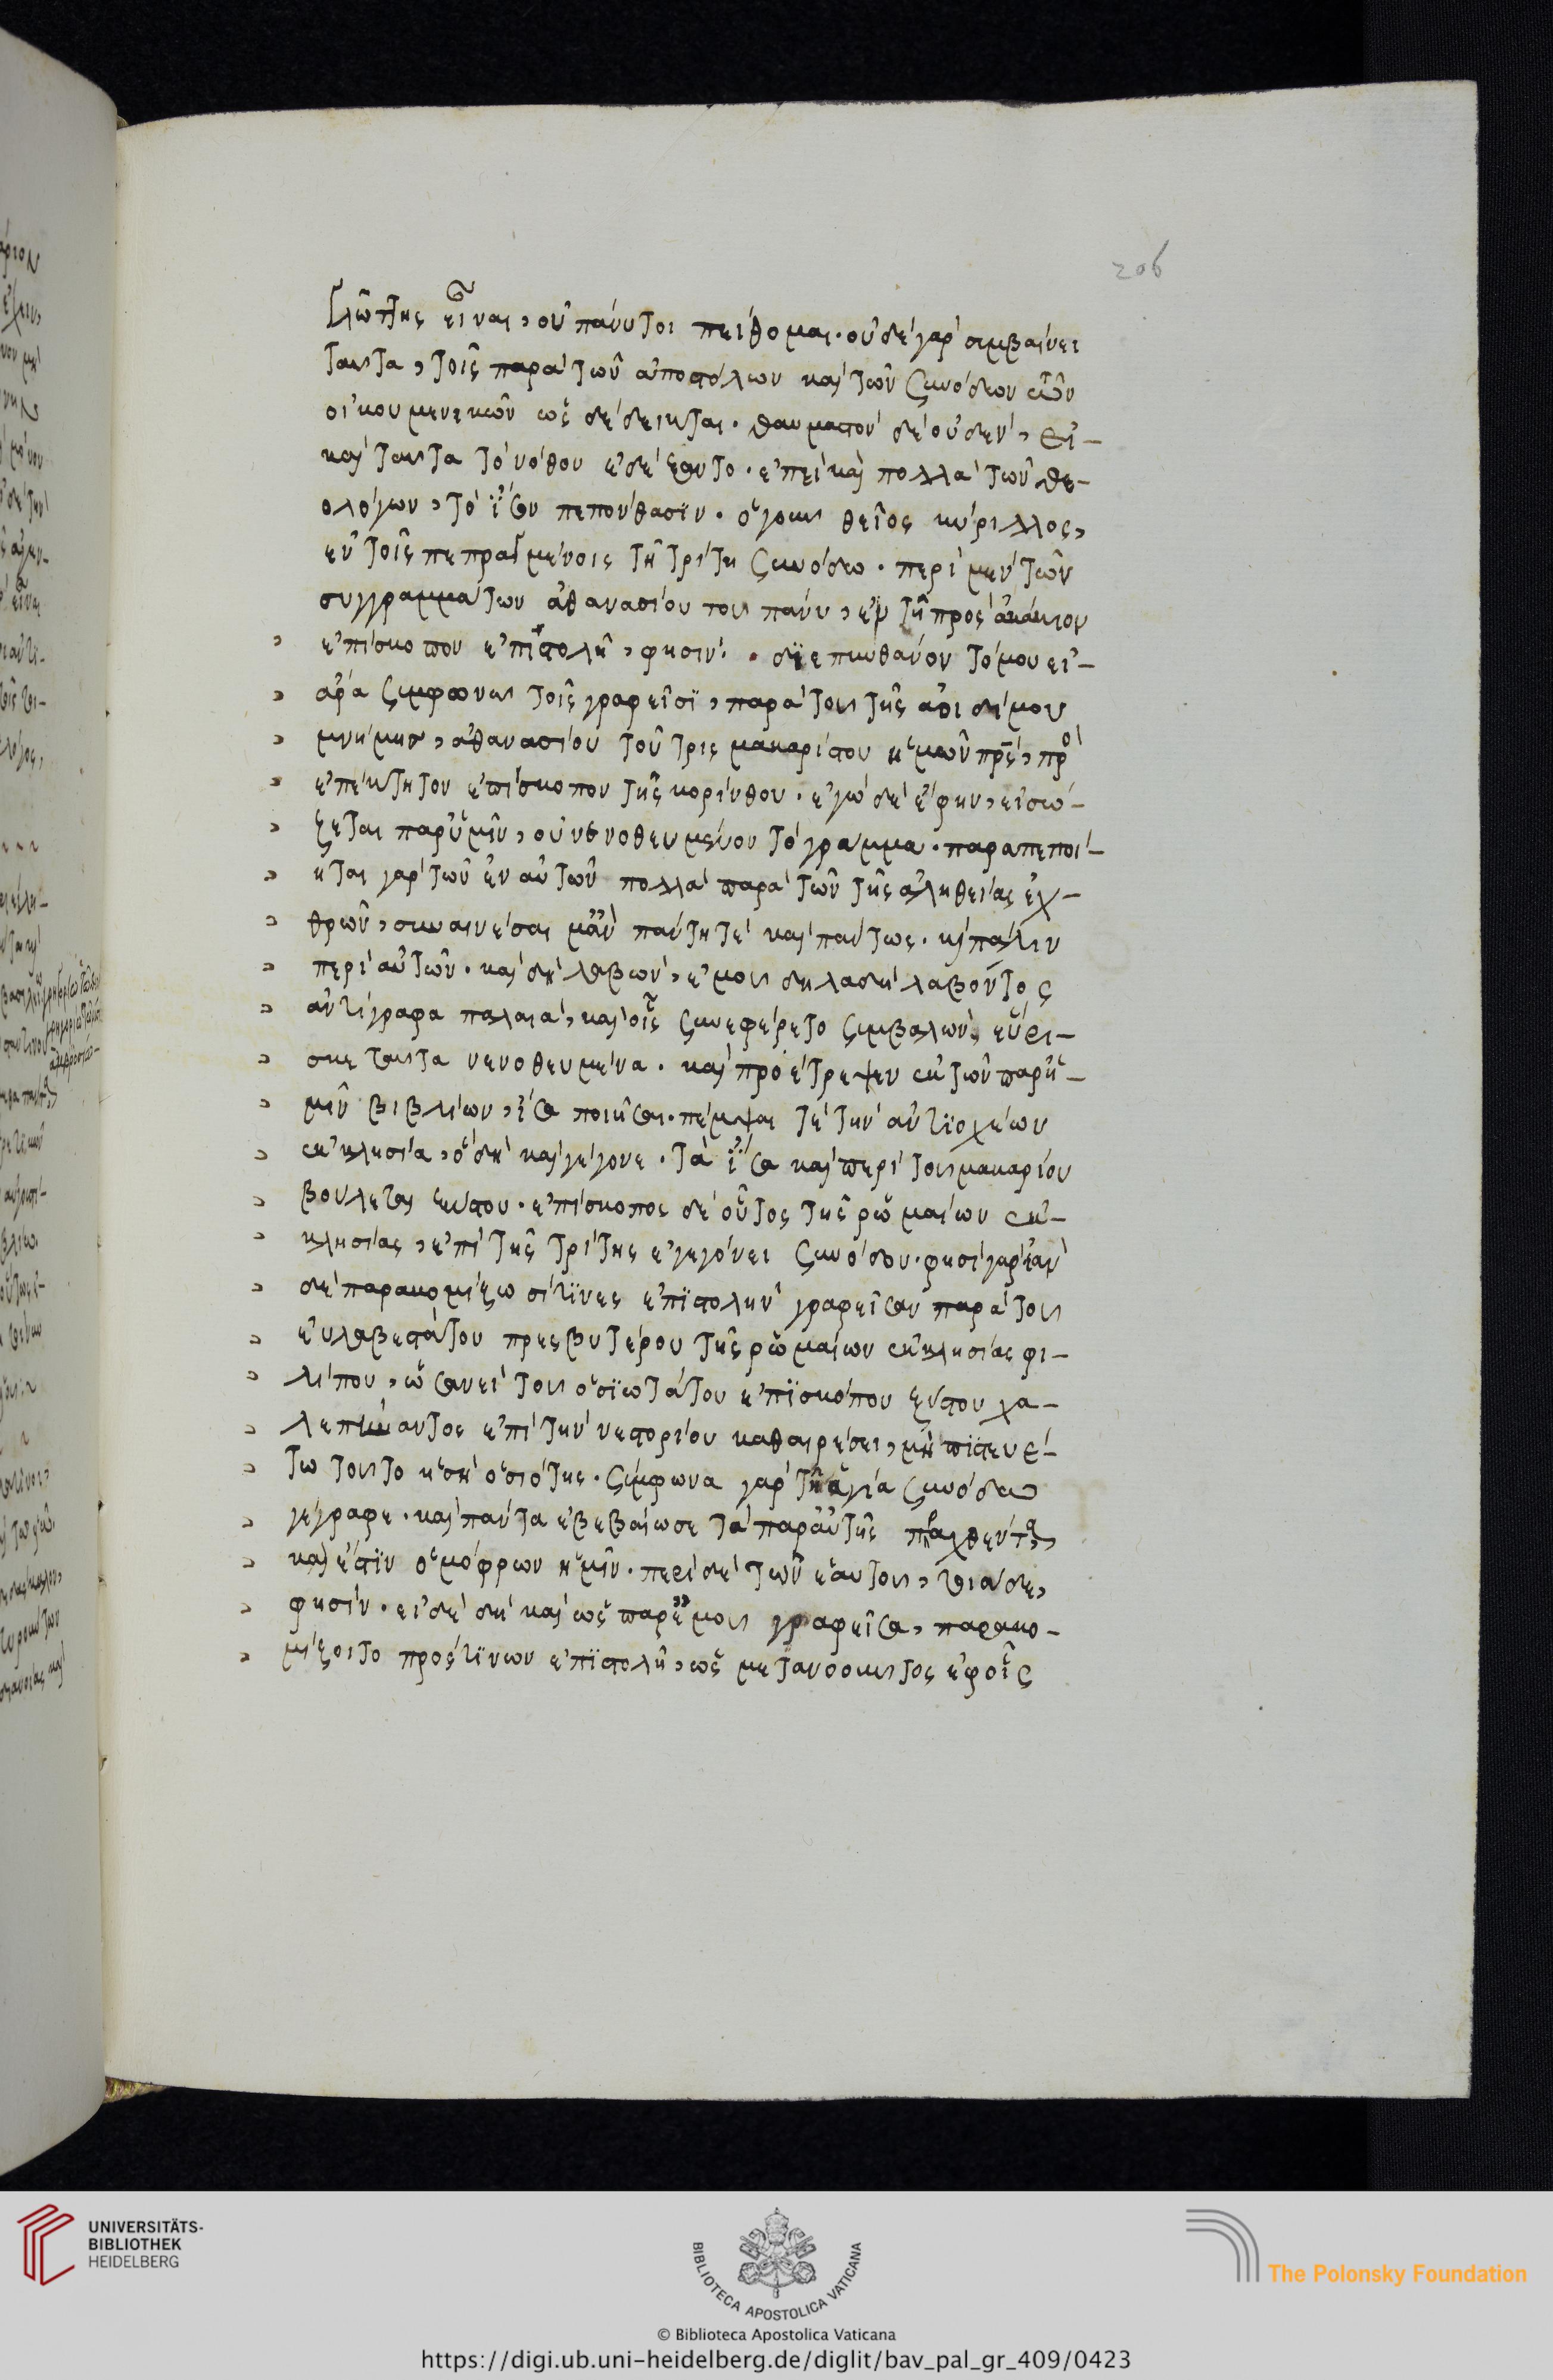 206
γλώττης εἶναι, οὐ πάνυ τοι πείθομαι. οὐδέ γάρ συμβαίνει
ταυτα, τοῖς παρὰ τῶν ἀποστόλων καὶ τῶν συνόδων τῶν
οἰκουμενικῶν ὡς δέδεικται. θαυμαστὸν δὲ οὐδὲν, εἰ-
καὶ ταυτα τὸ νόθον ἐδέξαντο. ἐπεὶ καὶ πολλὰ τῶν θε-
ολόγων, τὸ ἴσον πεπόνθασϊν. ὅγουν θεῖος κύριλλος,
ἐν τοῖς πεπραγμένοις τῆ τρίτη συνόδω. περὶ μὲν τῶν
συγγραμμάτων ἀθανασίου του πάνυ, ἐν τῆ πρὸς ἀκάκιον
ἐπίσκοπον ἐπιστολῆ, φησίν. διεπυνθάνον τό μου εἰ-
άρα συμφωνει τοῖς γραφεῖσϊ, παρὰ του τῆς ἀοιδίμου
μνήμης, ἀθανασίου τοῦ τρις μακαρίστου ἡμῶν πρς, πρὸ
ἐπέκτητον ἐπίσκοπον τῆς κορίνθου. ἐγὼ δὲ ἔφην, εἰ σώ-
ζεται παρ ὑμῖν, οὐ νενοθευμένον τὸ γράμμα. παραπεποί-
ηται γὰρ τῶν ἐν αὐτῶν πολλὰ παρὰ τῶν τῆς ἀληθείας ἐχ-
θρῶν, συναινέσαι μὰν πάντητὲ καὶ πάντως. κὶ πάλιν
περὶ αὐτῶν. καὶ δὴ λαβὼν, ἐμου δηλαδὴ λαβόντος
ἀντίγραφα παλαιὰ, καὶ οἷς συνεφέρετο συμβαλὼν, εὕρι-
σκε ταυτα νενοθευμένα. καὶ προέτρεψεν ἐκ τῶν παρ ἡ-
μῖν βιβλίων, ἴσα ποιῆσαι. πέμψαι τὲ τὴν ἀντϊοχέων
ἐκκλησία, ὃ δὴ καὶ γέγονε. τὰ ἴσα καὶ περὶ του μακαρίου
βούλεται ξύστου. ἐπίσκοπος δὲ οὗτος τῆς ρωμαίων ἐκ-
κλησίας, ἐπὶ τῆς τρίτης ἐγεγόνει συνόδου. φησὶ γὰρ ἐὰν
δὲ παρακομίζωσί τϊνες ἐπϊστολὴν γραφεῖσαν παρὰ του
εὐλαβεστάτου πρεσβυτέρου τῆς ρωμαίων ἐκκλησίας φι-
λίπου, ὡσανεὶ του ὁσϊωτάτου ἐπϊσκόπου ξύστου χα-
λεπήναντος ἐπὶ τὴν νεστορίου καθαιρέσει, μὴ πϊστευέ-
τω τουτο ἡ σὴ ὁσιότης. σύμφωνα γὰρ τῆ ἁγία συνόδω
γέγραφε. καὶ πάντα ἐβεβαίωσε τὰ παρ αὐτῆς πραχθέντα,
καὶ ἔστϊν ὁμόφρων ἡμῖν. περὶ δὲ τῶν ἑαυτου, τοιάδε,
φησίν. εἰ δὲ δὴ καὶ ὡς παρ ἐμου γραφεῖσα, παρακο-
μίζοιτο πρὸς τϊνων ἐπϊστολὴ, ὡς μετανοουντος ἐφ οἷς
UNIVERSITÄTS-
BIBLIOTHEK
HEIDELBERG
BIBLIOTECA APOSTOLICA VATICANA
The Polonsky Foundation
© Biblioteca Apostolica Vaticana
https://digi.ub.uni-heidelberg.de/diglit/bav_pal_gr_409/0423